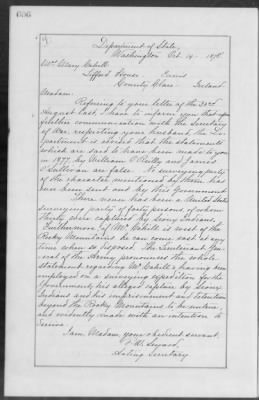 606
Department of State,
Washington Oct. 14. 1878.
Mrs Mary Cahill.
Lifford House Ennis
County Clare Ireland.
Madam:
Referring to your letter of the
August last, I have to inform you that upon
further communication with the Secretary
of War respecting your husband, the De-
partment is advised that the statements
which are said to have been made to you
in 1877 by William O'Reilly and James
O'Sullivan are false. No surveying party
of the character mentioned by them, has
been sent out by this Government
There never has been a United States
surveying party of forty persons, of whom
thirty were captured by Sioux Indians.
Furthermore, if Mr Cahill is west of the
Rocky Mountains, he can come east at any
time when so disposed. The Lieutenant Gen-
eral of the Army pronounces the whole
statement regarding Mr. Cahill's having been
employed on a surveying expedition for the
Government, his alleged capture by Sioux
Indians and his imprisonment and detention
beyond the Rocky Mountains to be untrue,
and evidently made with an intention to
I am, Madam, your obedient servant,
F. W. Seward.
Acting Secretary